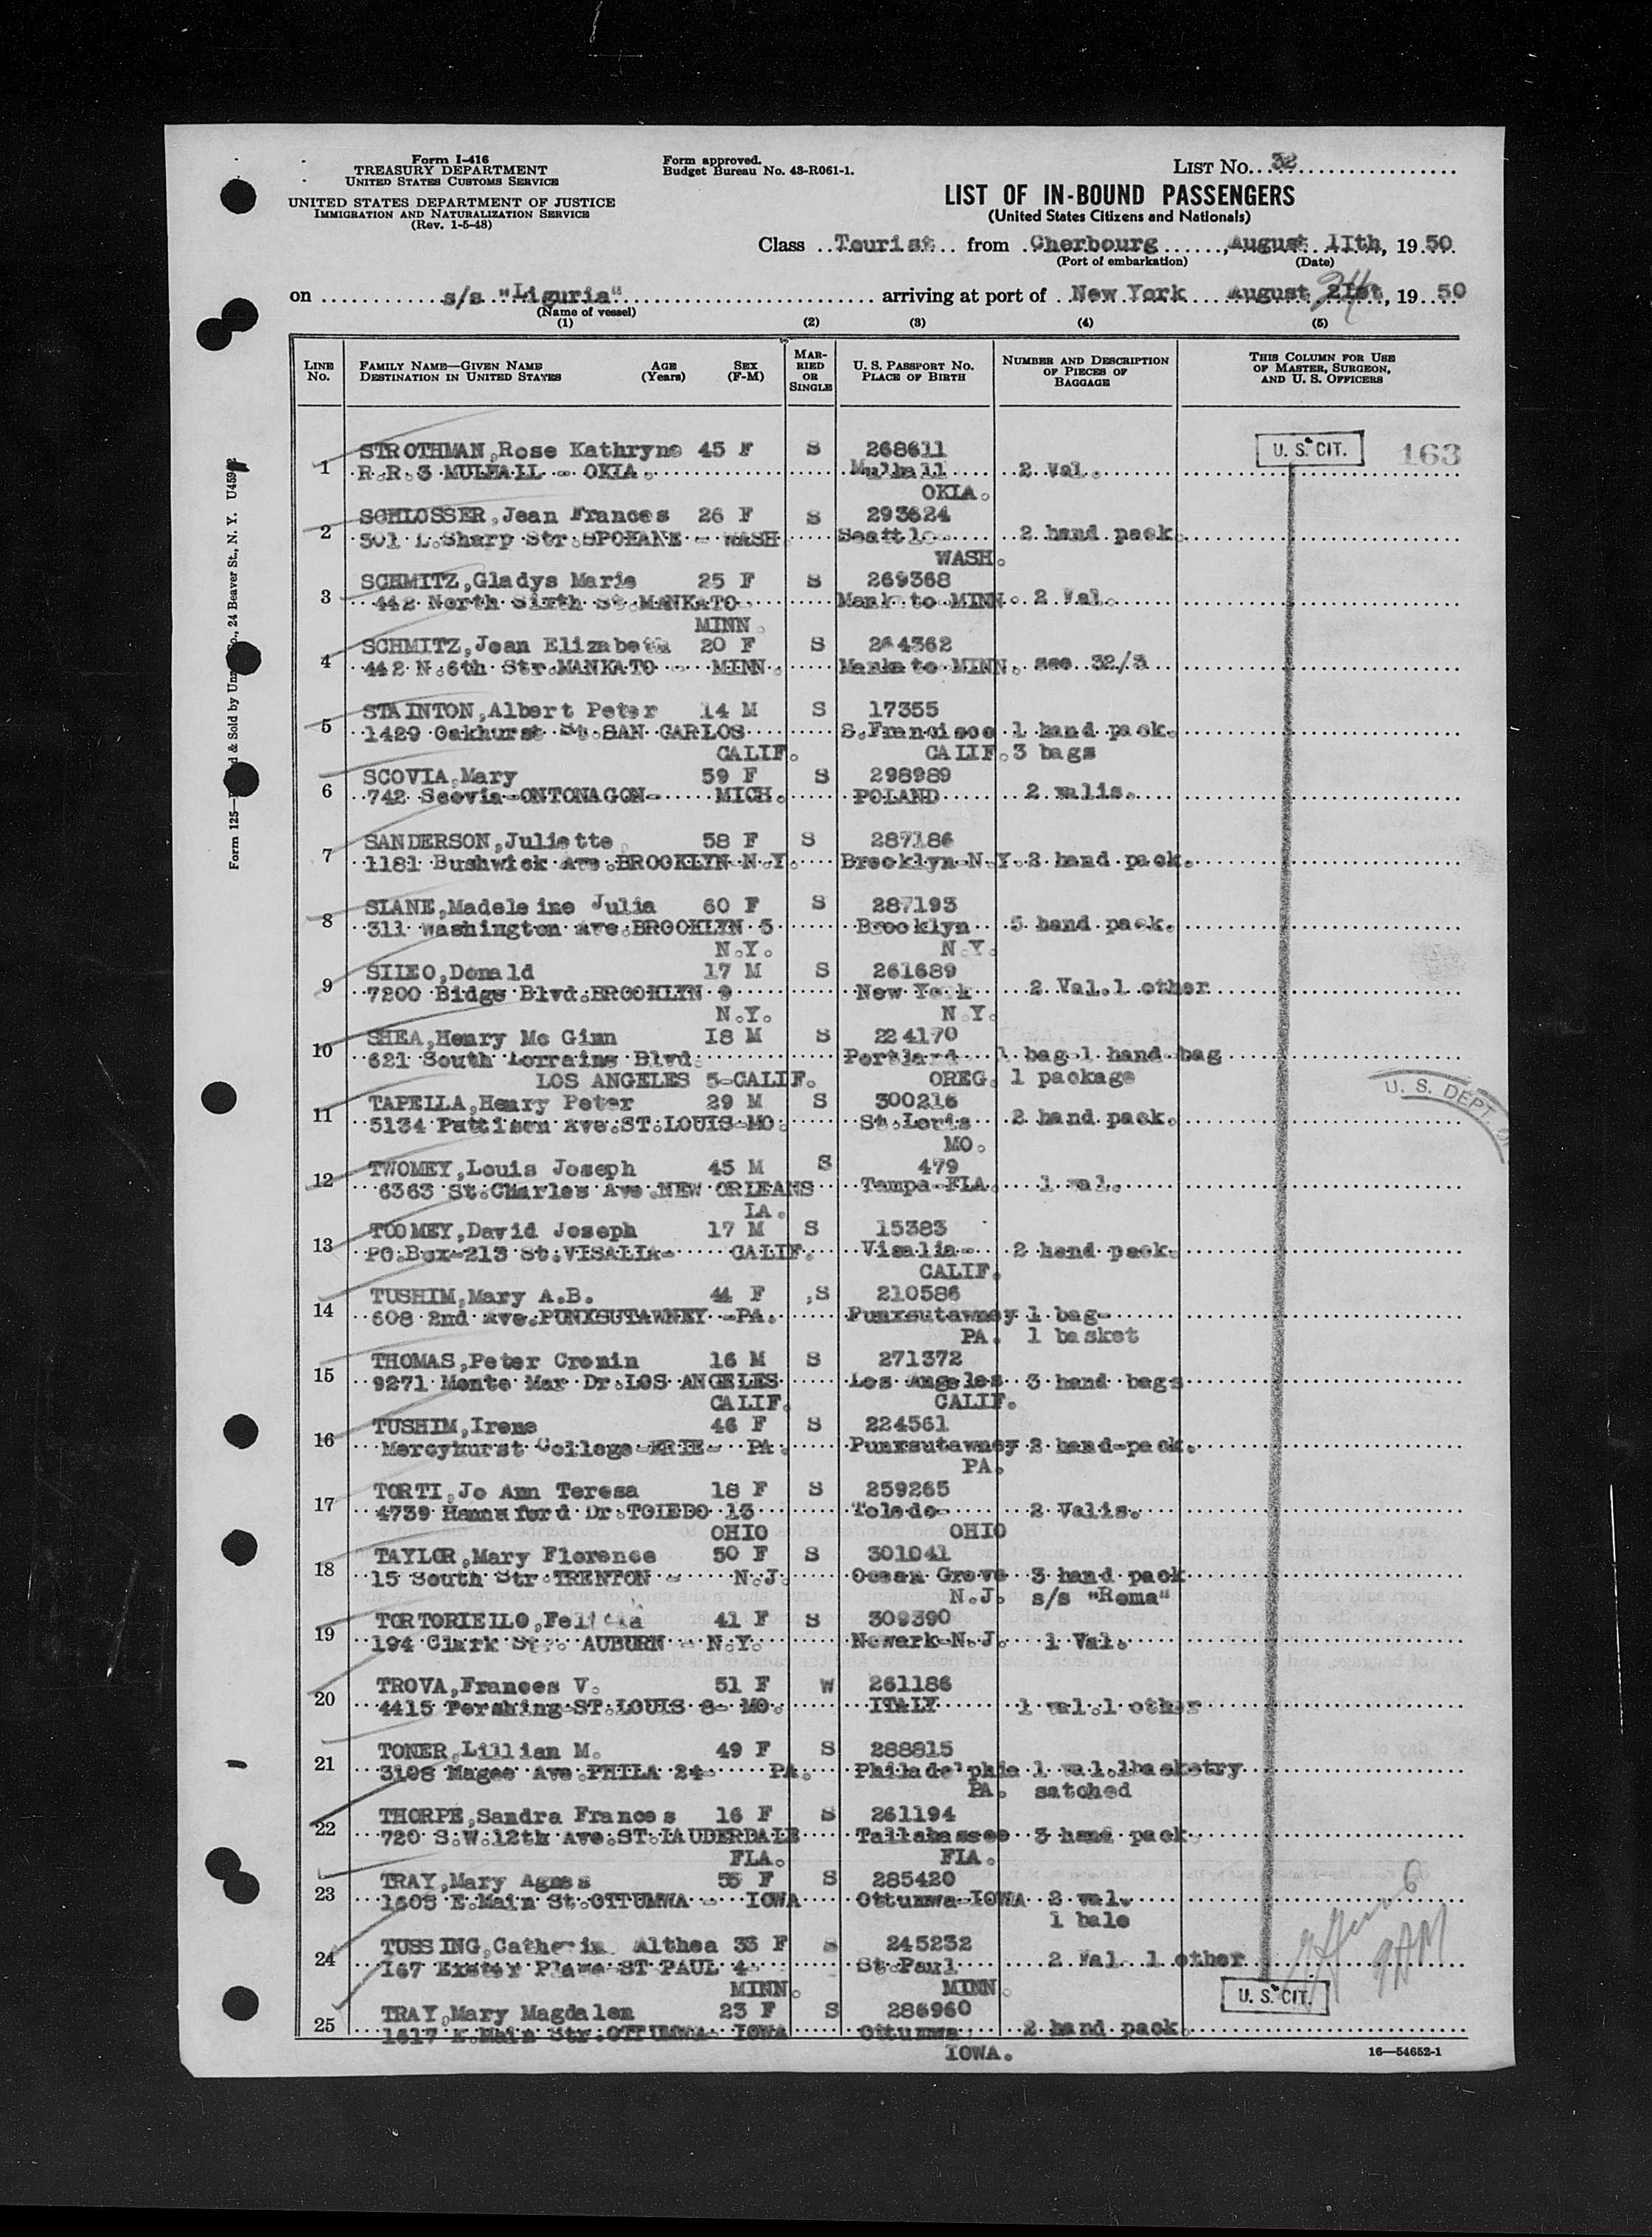 Form I-416
TREASURY DEPARTMENT
UNITED STATES CUSTOMS SERVICE
UNITED STATES DEPARTMENT OF JUSTICE
IMMIGRATION AND NATURALIZATION SERVICE
(Rev. 1-5-48)
Form approved.
Budget Bureau No. 43-R061-1.
LIST No. 32
LIST OF IN-BOUND PASSENGERS
(United States Citizens and Nationals)
Class Tourist from Cherbourg, August 11th, 1950
(Port of embarkation) (Date)
on s/s "Liguria" arriving at port of New York August 21st, 1950
24
(Name of vessel)
(1) (2) (3) (4) (5)
LINE No.
FAMILY NAME—GIVEN NAME AGE SEX
DESTINATION IN UNITED STATES (Years) (F-M)
MARRIED OR SINGLE
U. S. PASSPORT NO.
PLACE OF BIRTH
NUMBER AND DESCRIPTION OF PIECES OF BAGGAGE
THIS COLUMN FOR USE OF MASTER, SURGEON, AND U. S. OFFICERS
U. S. CIT. 163
1 STROTHMAN,Rose Kathryne 45 F S 268611
R.R.3 MULHALL - OKLA. Mulhall 2 Val.
OKLA.
2 SCHLOSSER,Jean Frances 26 F S 293624
301 L.Sharp Str.SPOKANE - WASH. Seattle 2 hand pack.
WASH.
3 SCHMITZ,Gladys Marie 25 F S 269368
442 North Sixth St.MANKATO Mankato MINN. 2 Val.
MINN.
4 SCHMITZ,Jean Elizabeth 20 F S 264362
442 N.6th Str.MANKATO - MINN. Mankato MINN. see 32/3
5 STAINTON,Albert Peter 14 M S 17355
1429 Oakhurst St.SAN CARLOS S.Francisco 1 hand pack.
CALIF. CALIF. 3 bags
6 SCOVIA,Mary 59 F S 298989
742 Scovia-ONTONAGON- MICH. POLAND 2 valis.
7 SANDERSON,Juliette 58 F S 287186
1181 Bushwick Ave.BROOKLYN-N.Y. Brooklyn-N.Y. 2 hand pack.
8 SLANE,Madeleine Julia 60 F S 287193
311 Washington Ave.BROOKLYN 5 Brooklyn 5 hand pack.
N.Y. N.Y.
9 SILEO,Donald 17 M S 261689
7200 Bidge Blvd.BROOKLYN 9 New York 2 Val.1 other
N.Y. N.Y.
10 SHEA,Henry Mc Ginn 18 M S 224170
621 South Lorraine Blvd. Portland 1 bag-1 hand bag
LOS ANGELES 5-CALIF. OREG. 1 package
11 TAPELLA,Henry Peter 29 M S 300216
5134 Pattison Ave.ST.LOUIS-MO. St.Louis 2 hand pack.
MO.
12 TWOMEY,Louis Joseph 45 M S 479
6363 St.Charles Ave.NEW ORLEANS Tampa-FLA. 1 val.
LA.
13 TOOMEY,David Joseph 17 M S 15383
PO.Box-213 St.VISALIA- CALIF. Visalia- 2 hand pack.
CALIF.
14 TUSHIM,Mary A.B. 44 F ,S 210586
608 2nd Ave.PUNXSUTAWNEY -PA. Punxsutawney 1 bag-
PA. 1 basket
15 THOMAS,Peter Cronin 16 M S 271372
9271 Monte Mar Dr.LOS ANGELES Los Angeles 3 hand bags
CALIF. CALIF.
16 TUSHIM,Irene 46 F S 224561
Mercyhurst College-ERIE- PA. Punxsutawney 2 hand-pack.
PA.
17 TORTI,Jo Ann Teresa 18 F S 259265
4739 Hannaford Dr.TOLEDO 13 Toledo- 2 Valis.
OHIO OHIO
18 TAYLOR,Mary Florence 50 F S 301041
15 South Str.TRENTON - N.J. Ocean Grove 3 hand pack
N.J. s/s "Roma"
19 TORTORIELLO,Felicia 41 F S 309390
194 Clark St. AUBURN - N.Y. Newark-N.J. 1 Val.
20 TROVA,Frances V. 51 F W 261186
4415 Pershing-ST.LOUIS 8- MO. ITALY 1 val.1 other
21 TONER,Lillian M. 49 F S 288815
3108 Magee Ave.PHILA 24- PA. Philadelphia 1 val.1basketry
PA. satched
22 THORPE,Sandra Frances 16 F S 261194
720 S.W.12th Ave.ST.LAUDERDALE Tallahassee 3 hand pack
FLA. FLA.
23 TRAY,Mary Agnes 55 F S 285420
1603 E.Main St.OTTUMWA - IOWA Ottumwa-IOWA 2 val.
1 bale
24 TUSSING,Catherin Althea 33 F S 245232
167 Exeter Place-ST PAUL 4- St.Paul 2 Val. 1 other
MINN. MINN.
25 TRAY,Mary Magdalen 23 F S 286960
1617 E.Main Str.OTTUMWA- IOWA Ottumwa 2 hand pack.
IOWA.
U. S. CIT.
U. S. DEPT. OF
16—54652-1